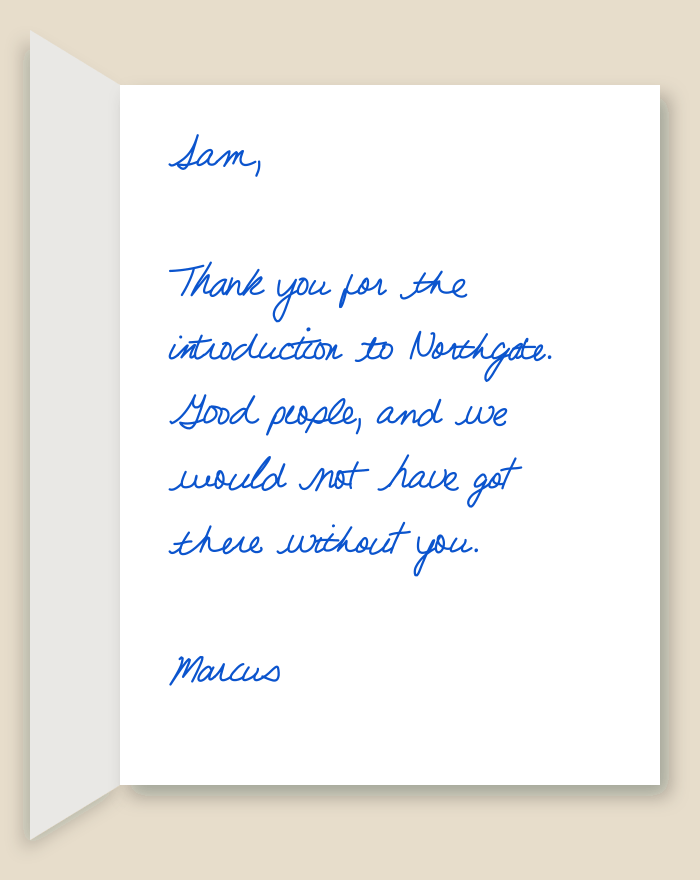 Sam,
Thank you for the
introduction to Northgate.
Good people, and we
would not have got
there without you.
Marcus